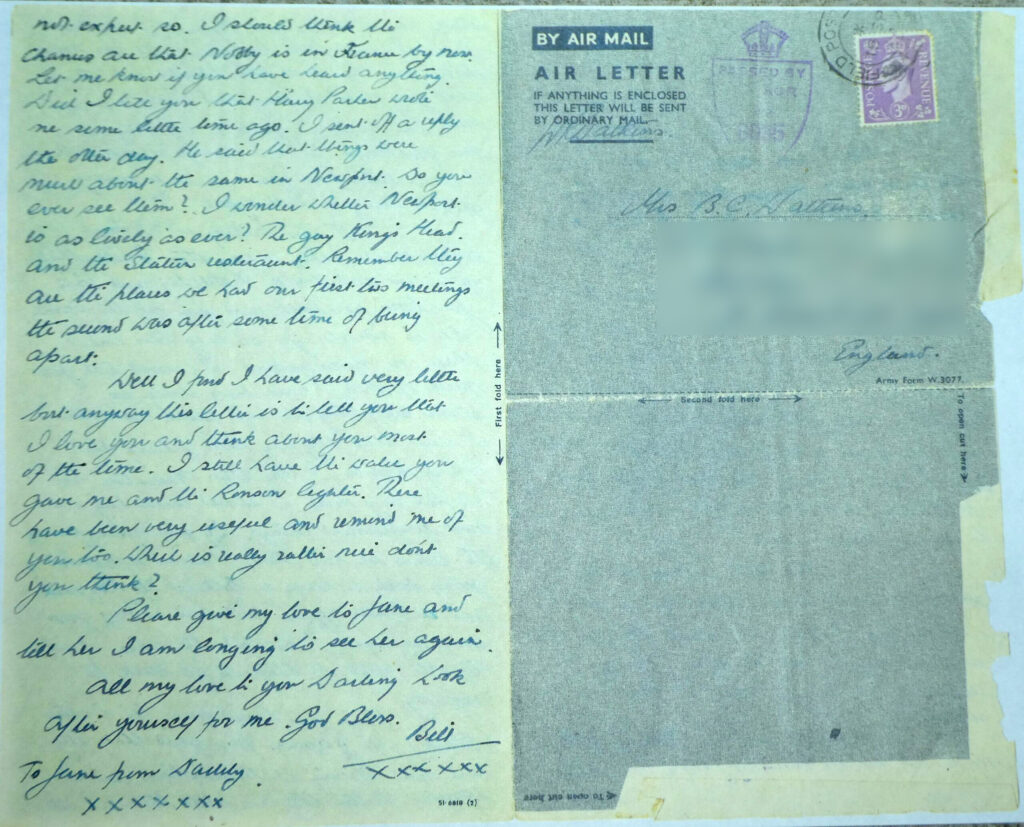 not expect so. I should think the
chances are that Nobby is in France by now.
Let me know if you have heard anything.
Did I tell you that Harry Parker wrote
me some little time ago. I sent off a reply
the other day. He said that things were
much about the same in Newport. Do you
ever see them? I wonder whether Newport
is as lively as ever? The gay Kings Head.
and the Station restaurant. Remember they
are the places we had our first two meetings
the second was after some time of being
apart.
Well I find I have said very little
but anyway this letter is to tell you that
I love you and think about you most
of the time. I still have the wallet you
gave me and the Ronson lighter. These
have been very useful and remind me of
you too. Which is really rather nice don't
you think?
Please give my love to Jane and
tell her I am longing to see her again.
All my love to you Darling Look
after yourself for me. God Bless.
Bill
xxxxxx
To Jane from Daddy
xxxxxxx
51-6819 (2)
First fold here
BY AIR MAIL
AIR LETTER
IF ANYTHING IS ENCLOSED
THIS LETTER WILL BE SENT
BY ORDINARY MAIL.
PASSED BY
FIELD POST
POSTAGE REVENUE
3D
Mrs B.C. Watkins.
England.
Army Form W.3077.
Second fold here
To open cut here
To open cut here